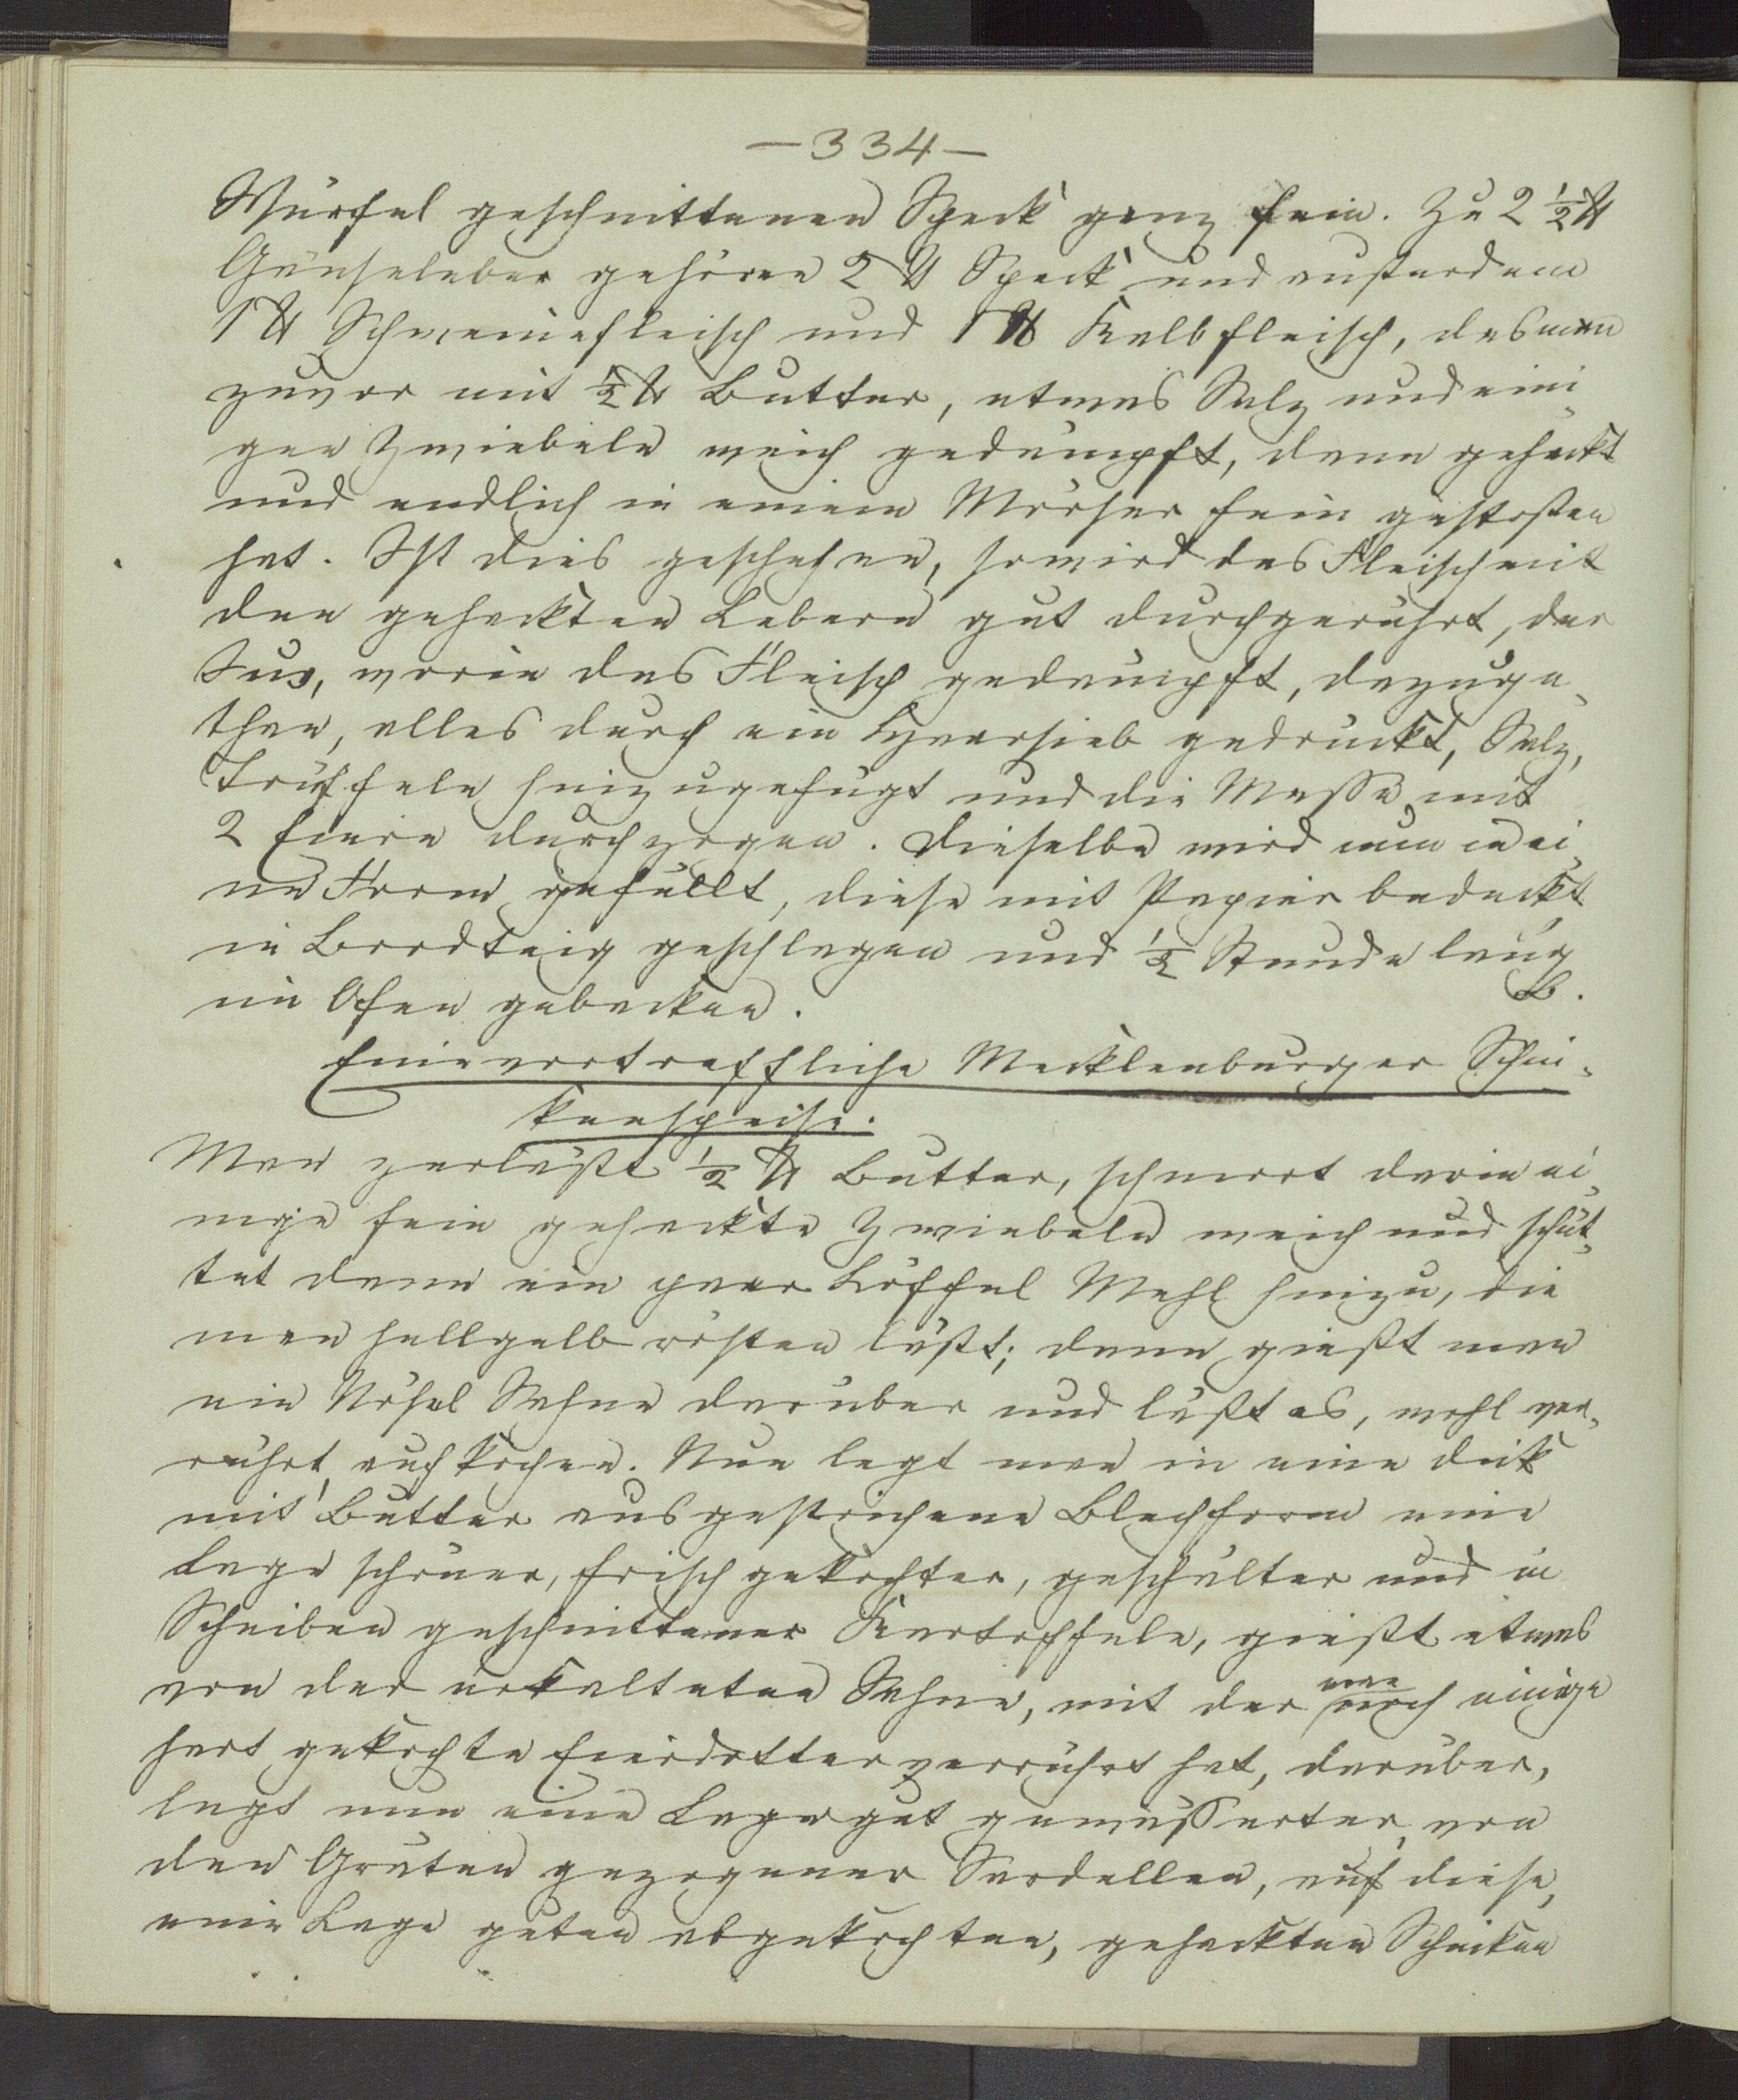 —334—
Würfel geschnittenen Speck ganz fein. Zu 2 ½ ℔
Gänseleber gehören 2 ℔ Speck und außerdem
1 ℔ Schweinefleisch und 1 ℔ Kalbfleisch, das man
zuvor mit ½ ℔ Butter, etwas Salz und eini¬
gen Zwiebeln weich gedämpft, dann gehackt
und endlich in einem Mörser fein gestoßen
hat. Ist dies geschehen, so wird das Fleisch mit
den gehackten Lebern gut durchgerührt, der
Jus, worin das Fleisch gedämpft, dazuge¬
than, alles durch ein Haarsieb gedrückt, Salz,
Trüffeln hinzugefügt und die Masse mit
2 Eiern durchzogen. Dieselbe wird nun in ei¬
ne Form gefüllt, diese mit Papier bedeckt
in Brodteig geschlagen und ½ Stunde lang
im Ofen gebacken. B.
Eine vortreffliche Mecklenburger Schin¬
kenspeise.
Man zerläßt ½ ℔ Butter, schmort darin ei¬
nige fein gehackte Zwiebeln weich und schüt¬
tet dann ein paar Löffel Mehl hinzu, die
man hellgelb rösten läßt; dann gießt man
ein Nösel Sahne darüber und läßt es, wohl ver¬
rührt, aufkochen. Nun legt man in eine dick
mit Butter ausgestrichene Blechform eine
Lage schöner, frisch gekochter, geschälter und in
Scheiben geschnittener Kartoffeln, gießt etwas
von der erkalteten Sahne, mit der man noch einige
hart gekochte Eierdotter verrührt hat, darüber,
legt nun eine Lage gut gewässerter, von
den Gräten gezogener Sardellen, auf diese,
eine Lage guten abgekochten, gehackten Schinken